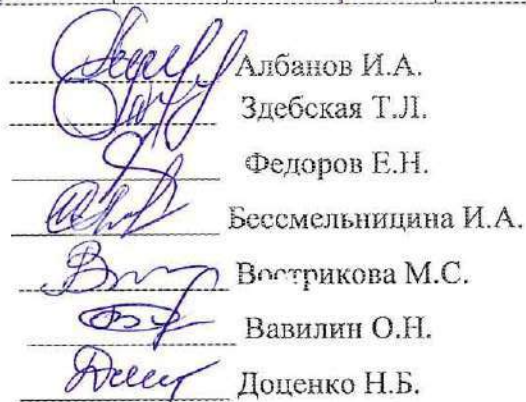 Албанов И.А.
Здебская Т.Л.
Федоров Е.Н.
Бессмельницина И.А.
Вострикова М.С.
Вавилин О.Н.
Доценко Н.Б.